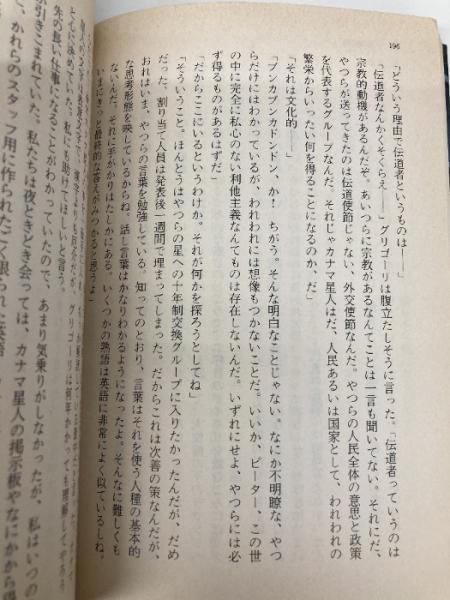 196
「どういう理由で伝道者というものは――」
「伝道者なんかくそくらえ――」グリゴーリは腹立たしそうに言った。「伝道者っていうのは
宗教的動機があるんだぞ。あいつらに宗教があるなんてことは一言も聞いてない。それにだ、
やつらが送ってきたのは伝道使節じゃない、外交使節なんだ。やつらの人民全体の意思と政策
を代表するグループなんだ。それじゃカナマ星人はだ、人民あるいは国家として、われわれの
繁栄からいったい何を得ることになるのか、だ」
「それは文化的――」
「ブンカブンカドンドン、か! ちがう。そんな明白なことじゃない。なにか不明瞭な、やつ
らだけにはわかっているが、われわれには想像もつかないことだ。いいか、ピーター、この世
の中に完全に私心のない利他主義なんてものは存在しないんだ。いずれにせよ、やつらには必
ず得るものがあるはずだ」
「だからここにいるというわけか。それが何かを探ろうとしてね」
「そういうこと。ほんとうはやつらの星への十年制交換グループに入りたかったんだが、だめ
だった、割り当て人員は発表後一週間で埋まってしまった。だからこれは次善の策なんだが、
おれはいま、やつらの言葉を勉強している。知ってのとおり、言葉はそれを使う人種の基本的
な思考形態を映しているからね。話し言葉はかなりわかるようになったよ。そんなに難しくも
ないんだ。それに手がかりはたしかにある。いくつかの熟語は英語に非常によく似ているしね。
いまにきっと最終的な答えがみつかると思うよ」
先の長い仕事になることがわかっていたので、あまり気乗りがしなかったが、私はいつの
が引きこまれていた。私たちは夜ときどき会っては、カナマ星人の掲示板やなにかから得
と、かれらのスタッフ用に作られたごく限られた英語